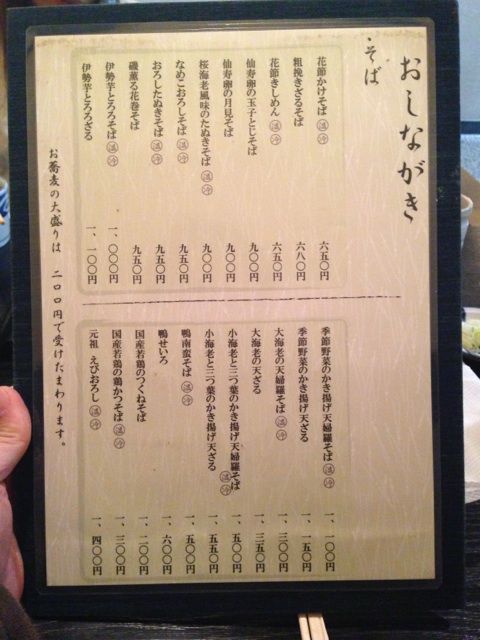 おしながき
そば
花節かけそば 温 冷 六五〇円
粗挽きざるそば 六八〇円
花節きしめん 温 冷 六五〇円
仙寿卵の玉子とじそば 九〇〇円
仙寿卵の月見そば 九〇〇円
桜海老風味のたぬきそば 温 冷 九〇〇円
なめこおろしそば 温 冷 九五〇円
おろしたぬきそば 温 冷 九五〇円
磯薫る花巻そば 九五〇円
伊勢芋とろろそば 温 冷 一、〇〇〇円
伊勢芋とろろざる 一、一〇〇円
季節野菜のかき揚げ天婦羅そば 温 冷 一、一〇〇円
季節野菜のかき揚げ天ざる 一、一五〇円
大海老の天婦羅そば 温 冷 一、三〇〇円
大海老の天ざる 一、三五〇円
小海老と三つ葉のかき揚げ天婦羅そば 温 冷 一、五〇〇円
小海老と三つ葉のかき揚げ天ざる 一、五五〇円
鴨南蛮そば 温 冷 一、五〇〇円
鴨せいろ 一、六〇〇円
国産若鶏のつくねそば 一、二〇〇円
国産若鶏の鶏かつそば 温 冷 一、三〇〇円
元祖 えびおろし 温 冷 一、四〇〇円
お蕎麦の大盛りは 二〇〇円で受けたまわります。